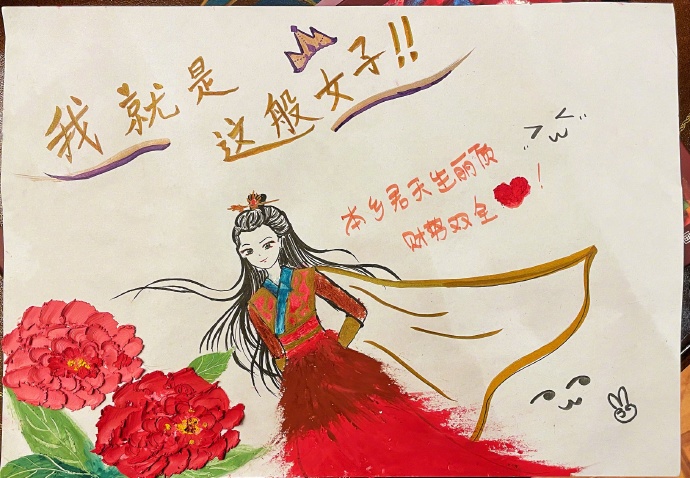 我就是
这般女子!!
本乡君天生丽质
财势双全!